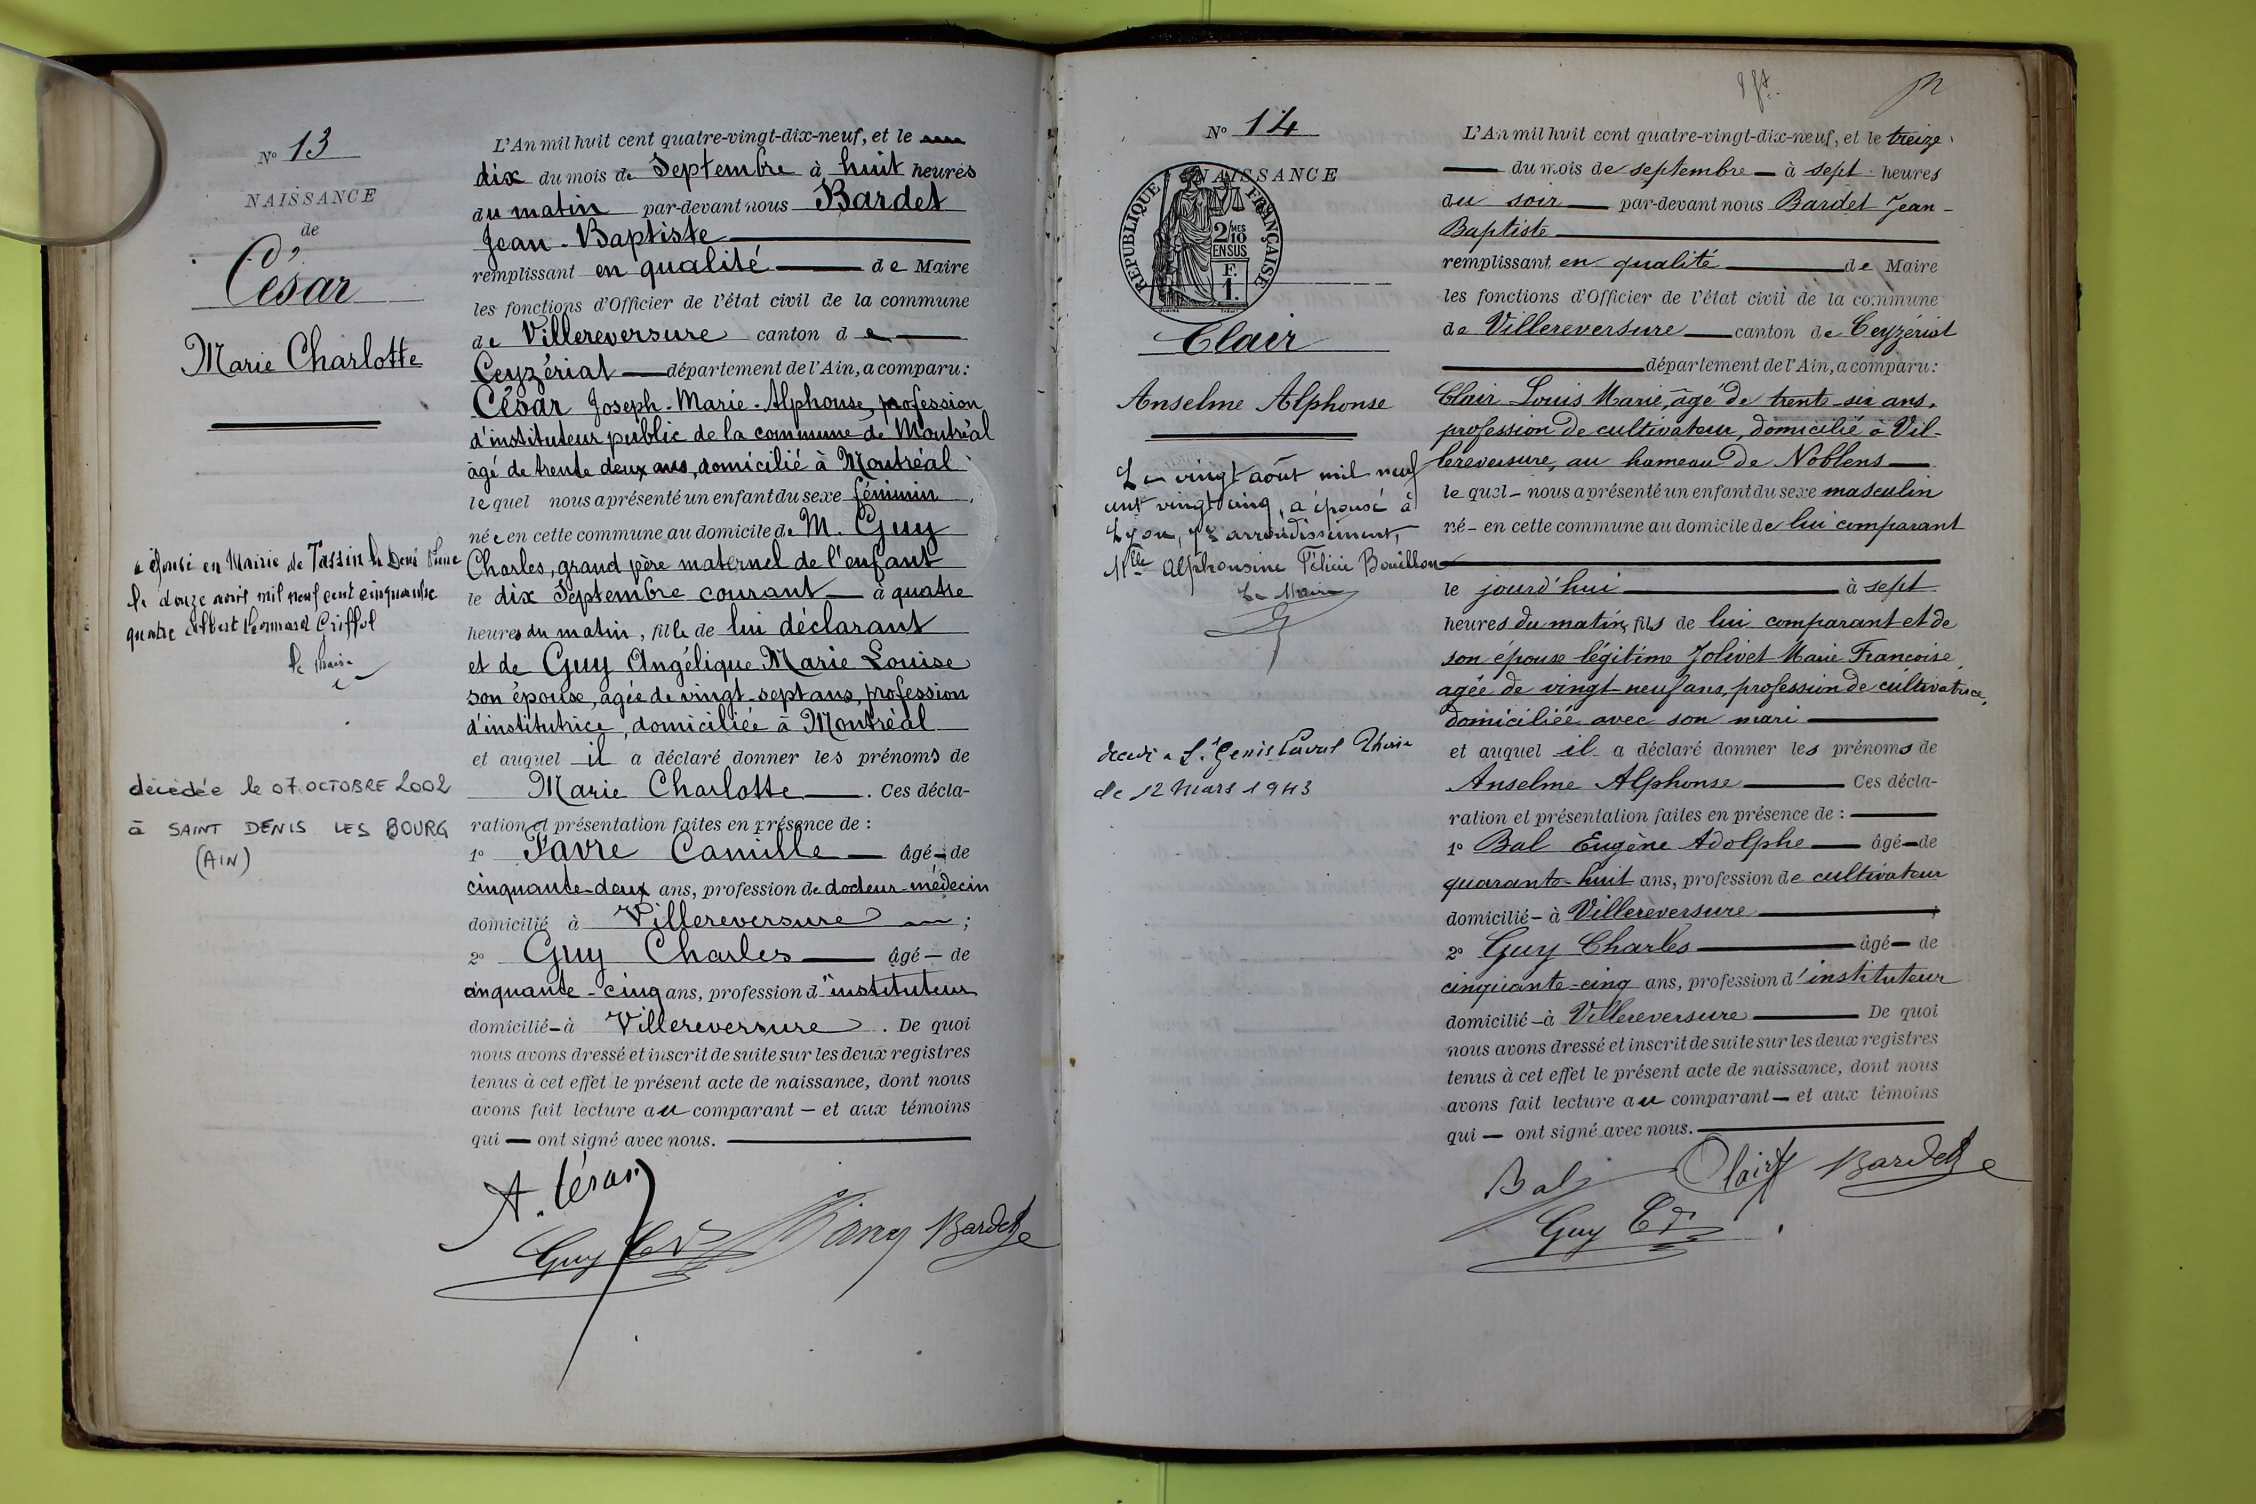 N° 13
NAISSANCE
de
César
Marie Charlotte
a épousé en Mairie de Tassin la Demi Lune
le douze avril mil neuf cent cinquante
quatre Albert Léonard
le Maire
décédée le 07 OCTOBRE 2002
à SAINT DENIS LES BOURG
(AIN)
L'An mil huit cent quatre-vingt-dix-neuf, et le
dix du mois de Septembre à huit heures
du matin par-devant nous Bardet
Jean-Baptiste
remplissant en qualité de Maire
les fonctions d'Officier de l'état civil de la commune
de Villereversure canton de
Ceyzériat département de l'Ain, a comparu:
César Joseph-Marie-Alphonse, profession
d'instituteur public de la commune de Montréal
âgé de trente deux ans, domicilié à Montréal
lequel nous a présenté un enfant du sexe féminin
née en cette commune au domicile de M. Guy
Charles, grand père maternel de l'enfant
le dix Septembre courant à quatre
heures du matin, fille de lui déclarant
et de Guy Angélique Marie Louise
son épouse, agée de vingt-sept ans, profession
d'institutrice, domiciliée à Montréal
et auquel il a déclaré donner les prénoms de
Marie Charlotte. Ces décla-
ration et présentation faites en présence de :
1° Favre Camille âgé de
cinquante-deux ans, profession de docteur-médecin
domicilié à Villereversure ;
2° Guy Charles âgé de
cinquante-cinq ans, profession d'instituteur
domicilié à Villereversure. De quoi
nous avons dressé et inscrit de suite sur les deux registres
tenus à cet effet le présent acte de naissance, dont nous
avons fait lecture au comparant et aux témoins
qui ont signé avec nous.
A. César
Guy Bardet
N° 14
NAISSANCE
RÉPUBLIQUE FRANÇAISE
2/10 MES
EN SUS
F.
1.
Clair
Anselme Alphonse
Le vingt août mil neuf
cent vingt cinq, a épousé à
Lyon, arrondissement,
Mlle Alphonsine Félicie Bouillon
Le Maire
décédé à St Genis Laval Rhône
le 12 Mars 1943
L'An mil huit cent quatre-vingt-dix-neuf, et le treize
du mois de septembre à sept heures
du soir par-devant nous Bardet Jean-
Baptiste
remplissant en qualité de Maire
les fonctions d'Officier de l'état civil de la commune
de Villereversure canton de Ceyzériat
département de l'Ain, a comparu:
Clair Louis Marie, âgé de trente-six ans,
profession de cultivateur, domicilié à Vil-
lereversure, au hameau de Noblens
lequel nous a présenté un enfant du sexe masculin
né en cette commune au domicile de lui comparant
le jourd'hui à sept
heures du matin, fils de lui comparant et de
son épouse légitime Jolivet Marie Françoise,
agée de vingt-neuf ans, profession de cultivatrice,
domiciliée avec son mari
et auquel il a déclaré donner les prénoms de
Anselme Alphonse Ces décla-
ration et présentation faites en présence de :
1° Bal Eugène Adolphe âgé de
quarante-huit ans, profession de cultivateur
domicilié à Villereversure ;
2° Guy Charles âgé de
cinquante-cinq ans, profession d'instituteur
domicilié à Villereversure De quoi
nous avons dressé et inscrit de suite sur les deux registres
tenus à cet effet le présent acte de naissance, dont nous
avons fait lecture au comparant et aux témoins
qui ont signé avec nous.
Bal Clair Bardet
Guy